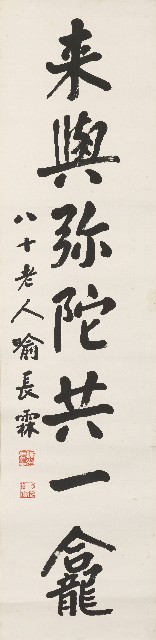 来與弥陀共一龕
八十老人喻長霖